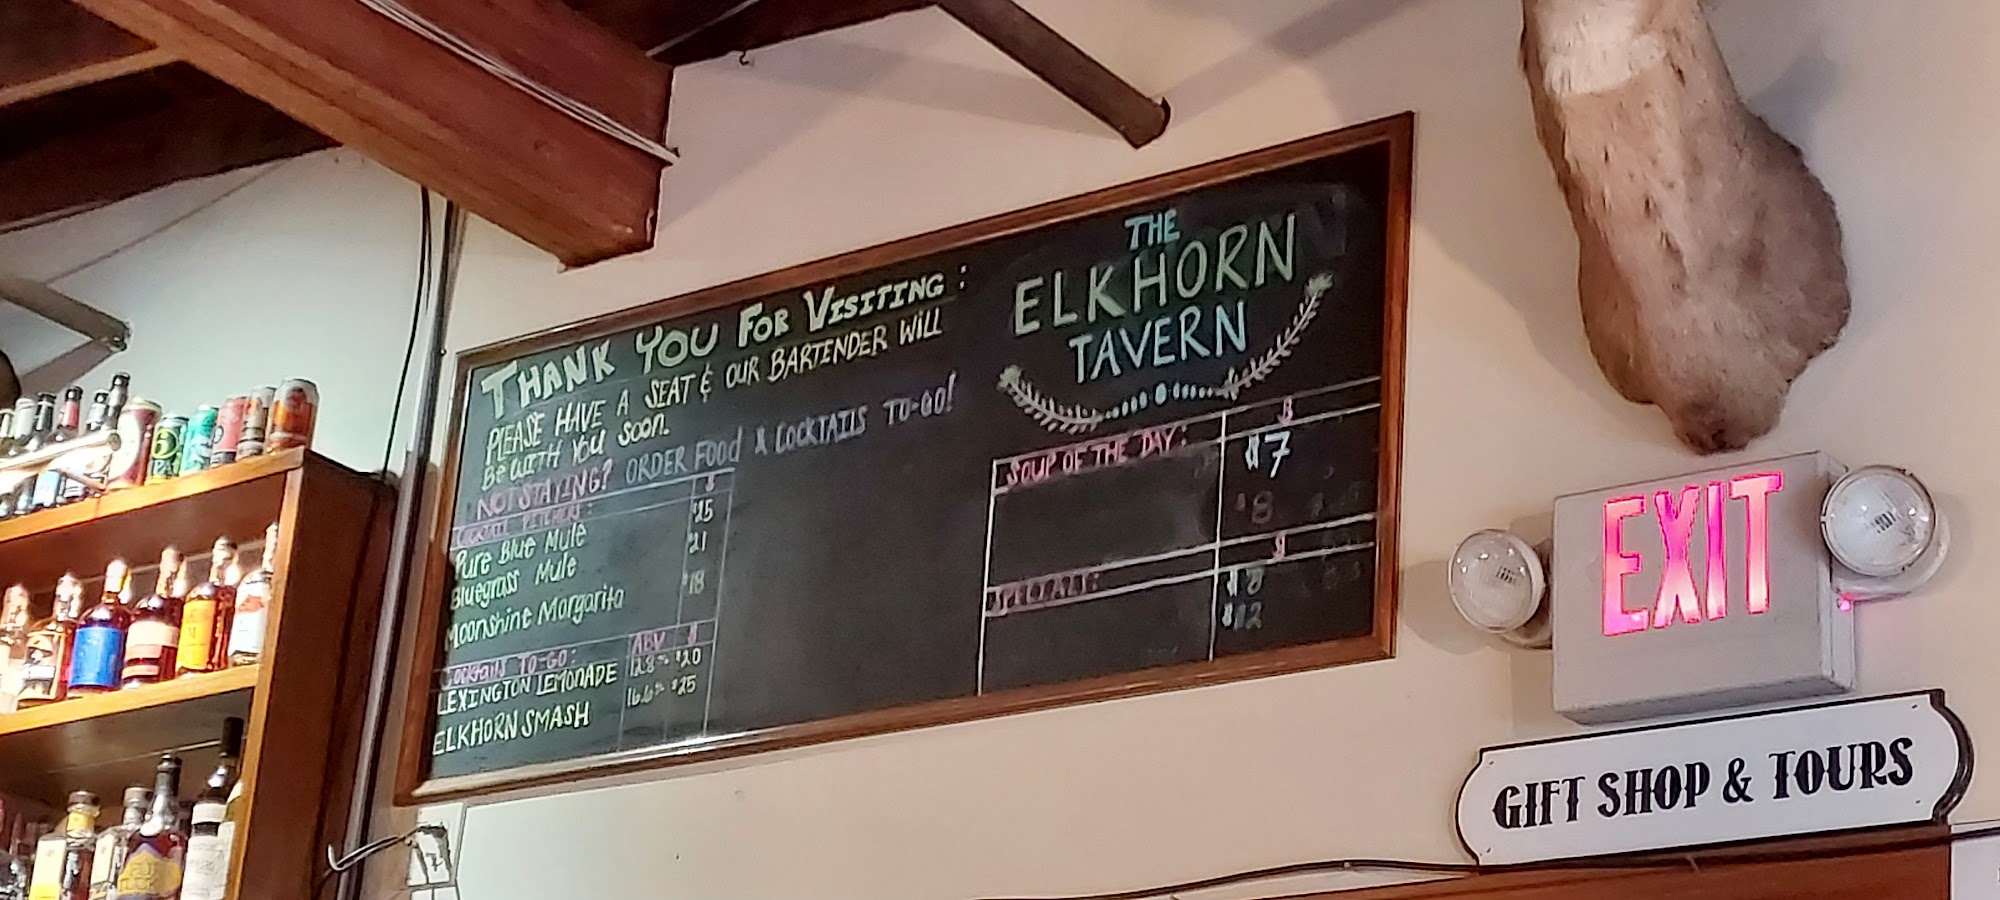 THANK YOU FOR VISITING:
PLEASE HAVE A SEAT & OUR BARTENDER WILL
BE WITH YOU SOON.
NOT STAYING? ORDER FOOD & COCKTAILS TO-GO!
COCKTAIL PITCHERS: $
Pure Blue Mule $25
Bluegrass Mule $21
Moonshine Margarita $18
COCKTAILS TO-GO: ABV $
LEXINGTON LEMONADE 12.8% $20
ELKHORN SMASH 16.6% $25
THE
ELKHORN
TAVERN
SOUP OF THE DAY: $
$7
$8
SPECIALS: $
$8
$12
EXIT
GIFT SHOP & TOURS